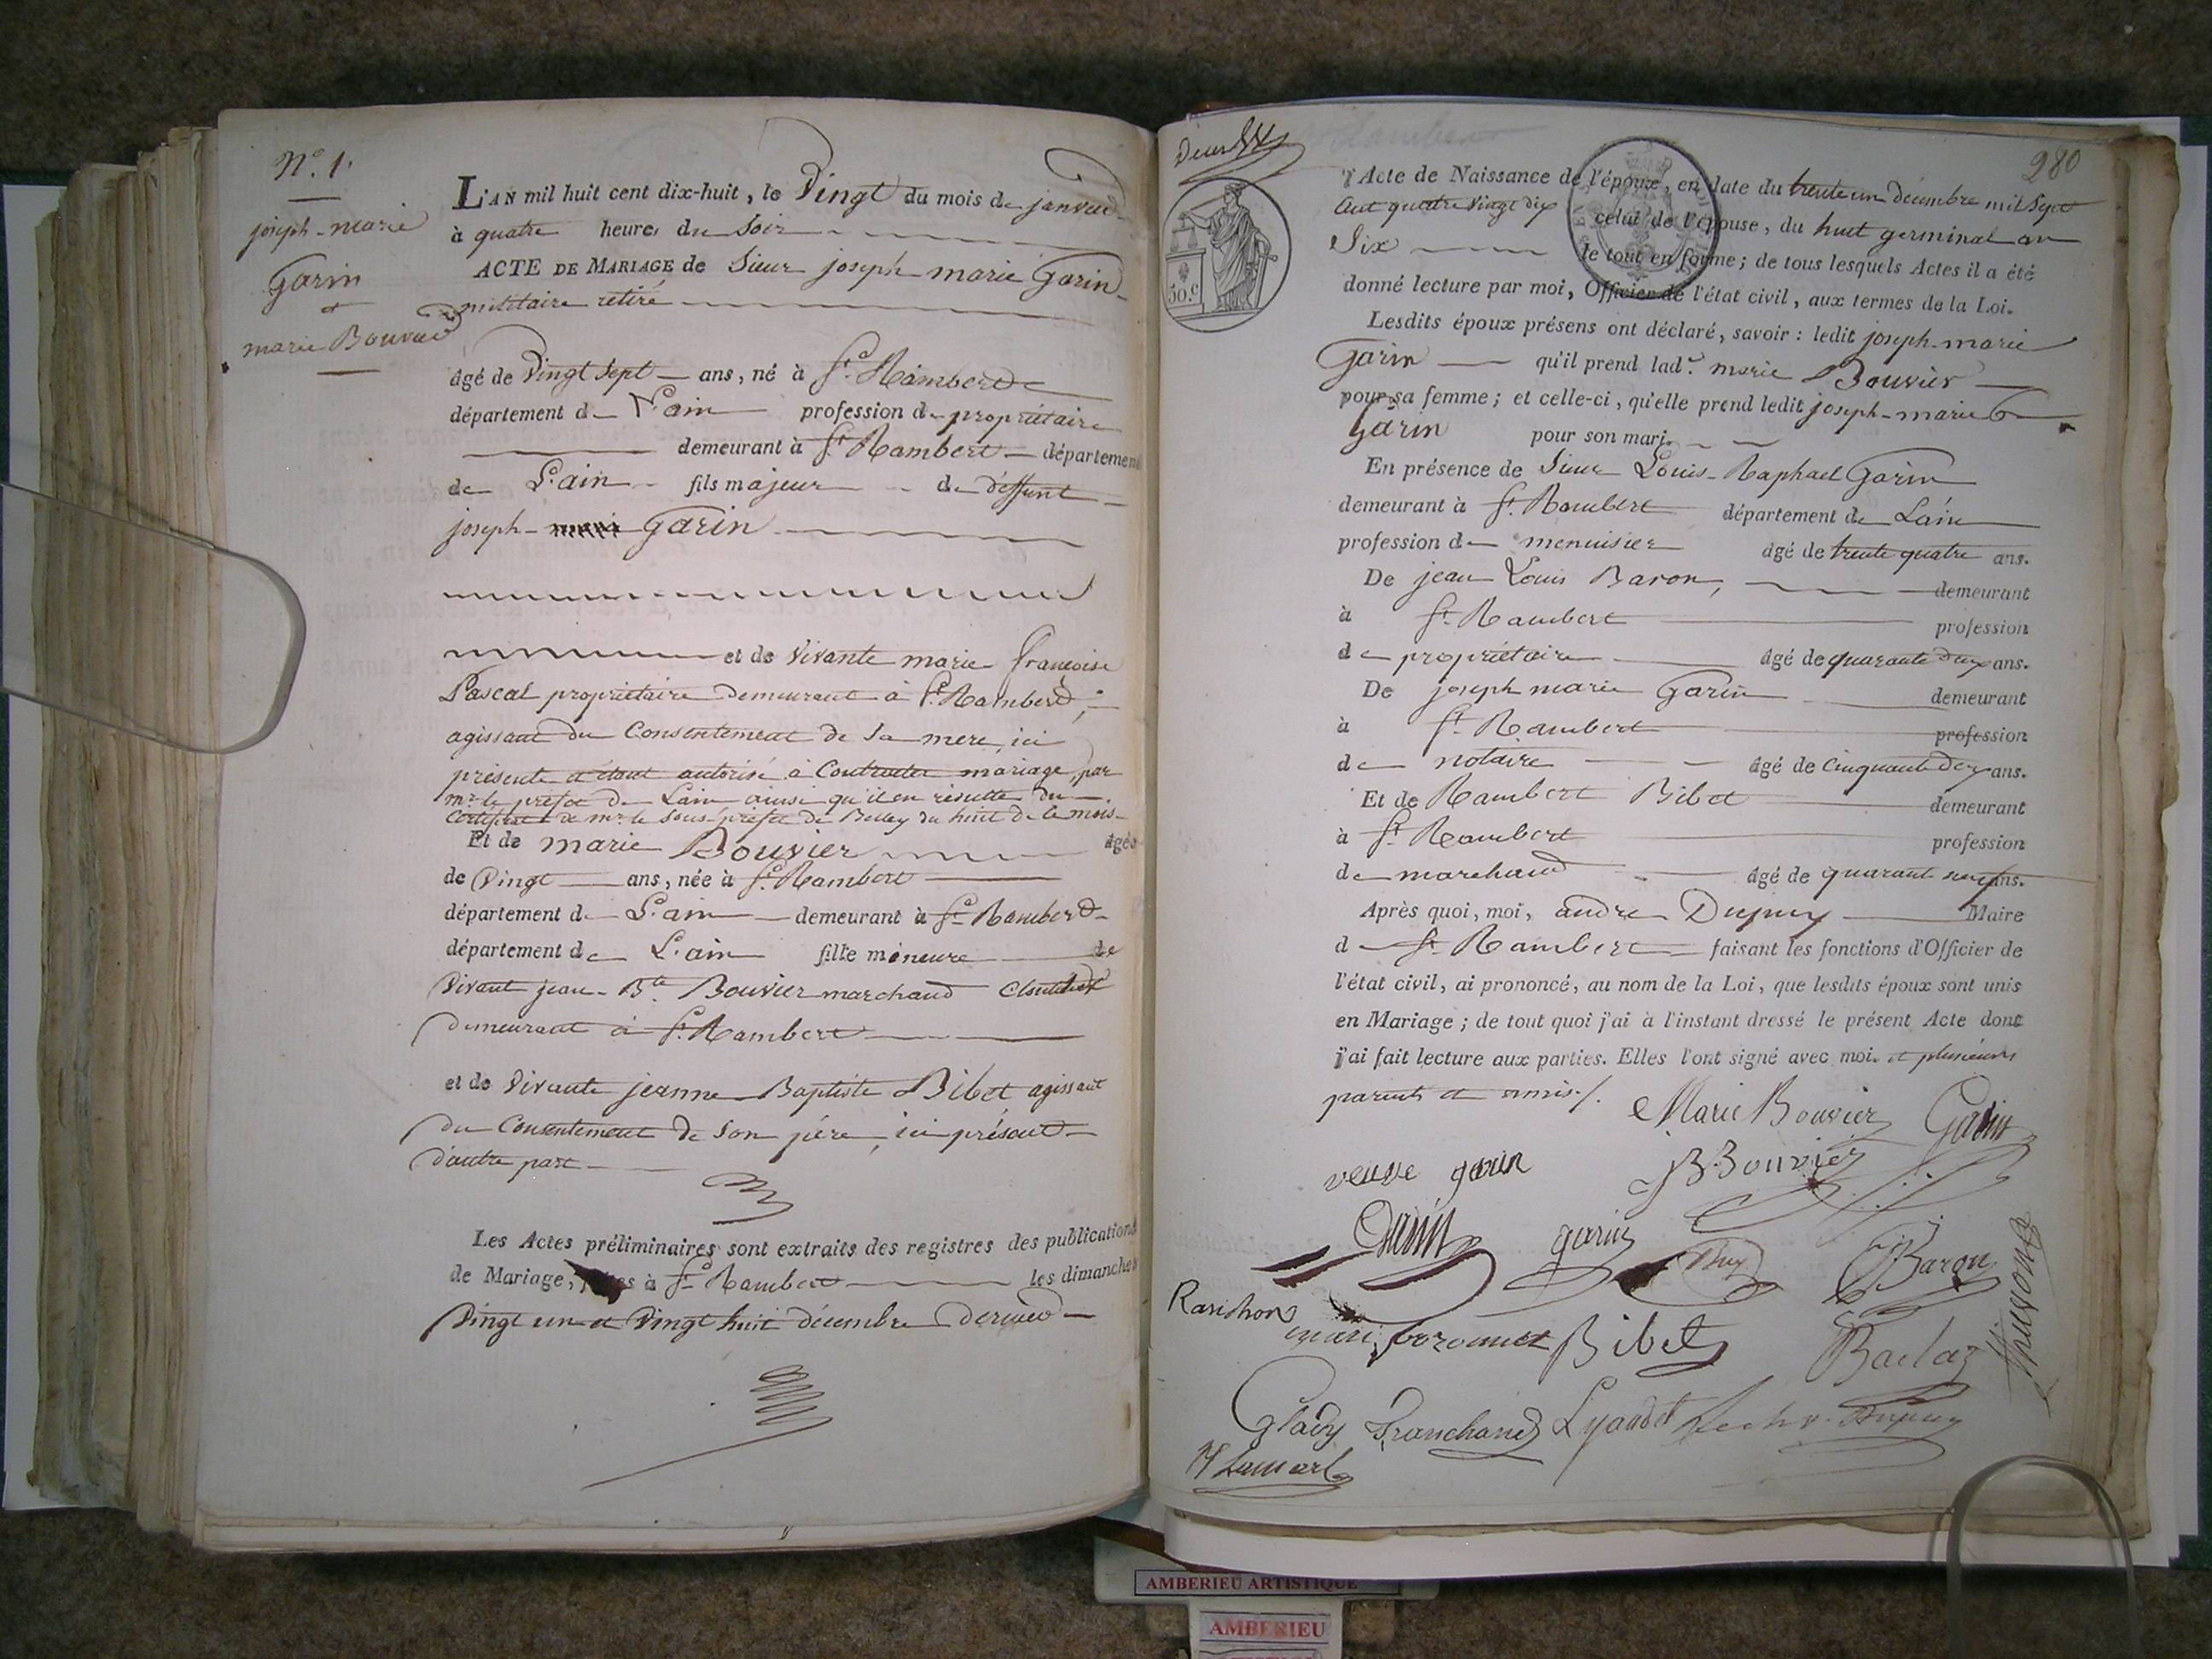 N.o 1.
joseph-marie
Garin
et
marie Bouvier
L'AN mil huit cent dix-huit, le Vingt du mois de janvier
à quatre heures du Soir
ACTE DE MARIAGE de Sieur joseph marie Garin
militaire retiré
âgé de Vingt Sept ans, né à St. Rambert
département de L'ain profession de propriétaire
demeurant à St. Rambert département
de L'ain fils majeur de deffunt
joseph Garin
et de Vivante marie françoise
Pascal propriétaire demeurant à St. Rambert,
agissant du Consentement de Sa mere, ici
présente et étant autorisé à Contracter mariage, par
mr. le préfet de Lain ainsi qu'il en résulte du
Certificat de mr. le Sous-préfet de Belley du huit de ce mois
Et de marie Bouvier âgée
de Vingt ans, née à St. Rambert
département de L'ain demeurant à St. Rambert
département de L'ain fille mineure de
Vivant jean-Bte. Bouvier marchand
demeurant à St. Rambert
et de Vivante jeanne Baptiste Bibet agissant
du Consentement de Son père, ici présent
d'autre part
Les Actes préliminaires sont extraits des registres des publications
de Mariage, faites à St. Rambert les dimanches
Vingt un et Vingt huit décembre dernier
280
l'Acte de Naissance de l'époux, en date du trente un décembre mil Sept
Cent quatre Vingt dix celui de l'épouse, du huit germinal an
Six le tout en forme; de tous lesquels Actes il a été
50.c
donné lecture par moi, Officier de l'état civil, aux termes de la Loi.
Lesdits époux présens ont déclaré, savoir: ledit joseph-marie
Garin qu'il prend lad.e marie Bouvier
pour sa femme; et celle-ci, qu'elle prend ledit joseph-marie
Garin pour son mari.
En présence de Sieur Louis-Raphael Garin
demeurant à St. Rambert département de Lain
profession de menuisier âgé de trente quatre ans.
De jean Louis Baron, demeurant
à St. Rambert profession
de propriétaire âgé de quarante deux ans.
De joseph marie Garin demeurant
à St. Rambert profession
de notaire âgé de Cinquante deux ans.
Et de Rambert Bibet demeurant
à St. Rambert profession
de marchand âgé de quarante neuf ans.
Après quoi, moi, andre Dupuy Maire
de St. Rambert faisant les fonctions d'Officier de
l'état civil, ai prononcé, au nom de la Loi, que lesdits époux sont unis
en Mariage; de tout quoi j'ai à l'instant dressé le présent Acte dont
j'ai fait lecture aux parties. Elles l'ont signé avec moi. et plusieurs
parents et amis/.
Marie Bouvier Garin
veuve garin JB Bouvier
Garin garin Baron
Bibet
Franchand Lyaudet Dupuy
AMBERIEU ARTISTIQUE
AMBERIEU